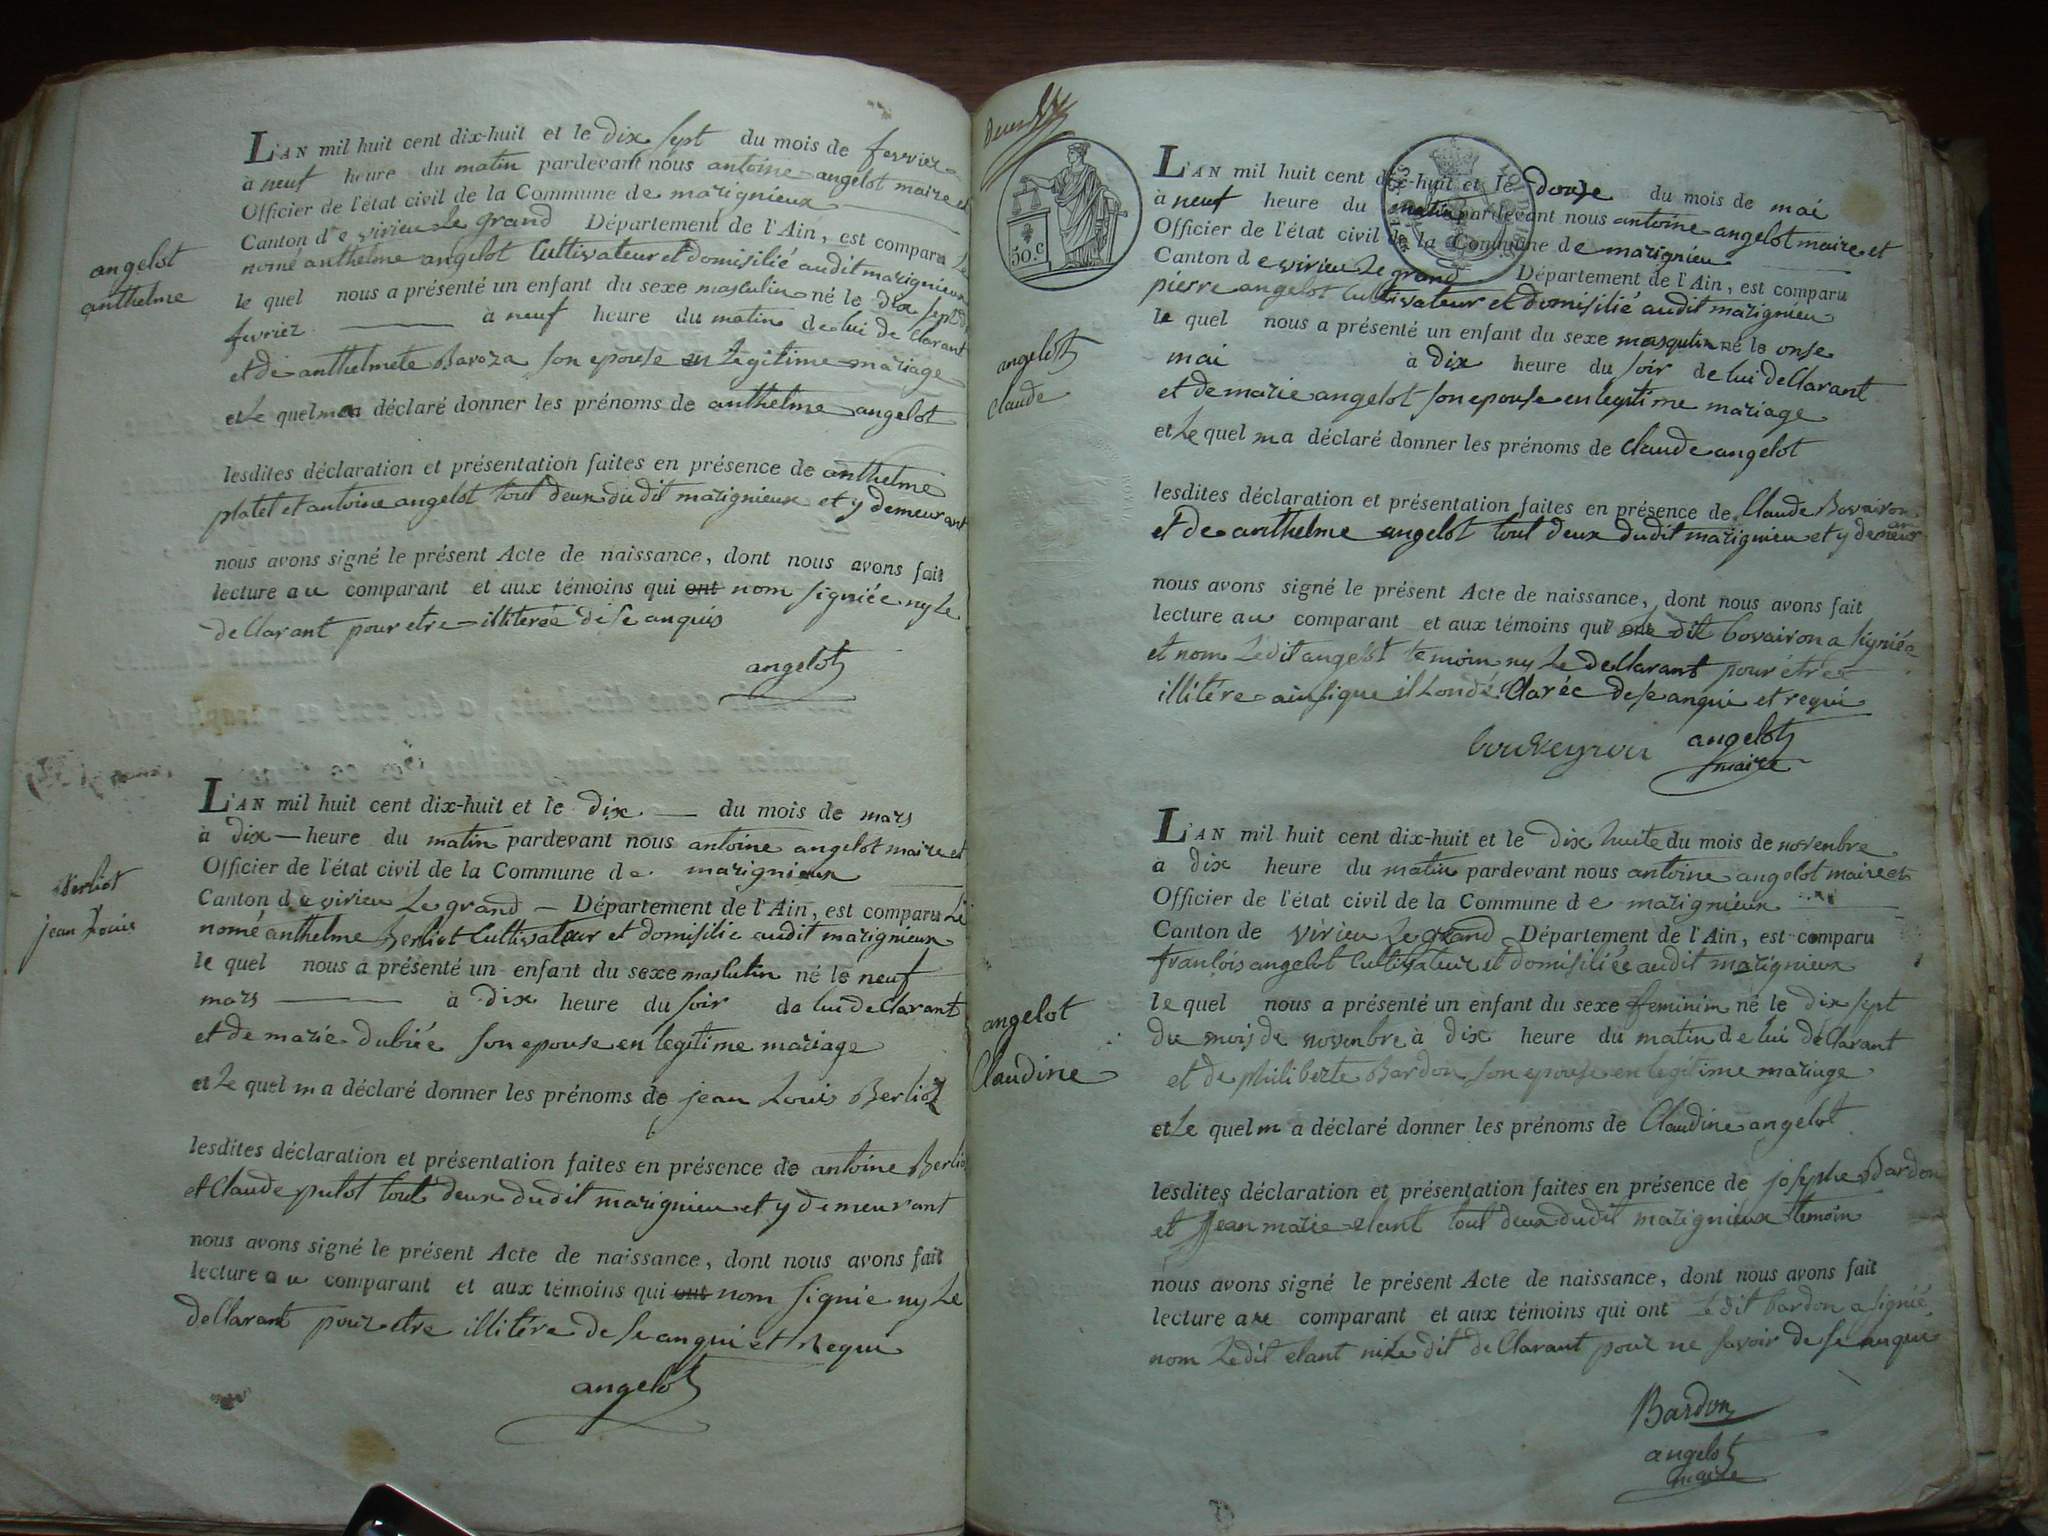 L'AN mil huit cent dix-huit et le dix sept du mois de fevriez
à neuf heure du matin pardevant nous antoine angelot maire et
Officier de l'état civil de la Commune de marignieux
Canton de virieu Le grand Département de l'Ain, est comparu Le
nomé anthelme angelot Cultivateur et domisilié audit marignieux
le quel nous a présenté un enfant du sexe masculin né le dix sept
fevriez à neuf heure du matin de lui de Clarant
et de anthelmete Bavoza son epouse en Legitime mariage
et Le quel ma déclaré donner les prénoms de anthelme angelot
angelot
anthelme
lesdites déclaration et présentation faites en présence de anthelme
platet et antoine angelot tout deux du dit marignieux et y demeurant
nous avons signé le présent Acte de naissance, dont nous avons fait
lecture au comparant et aux témoins qui ont nom signiée ny Le
de Clarant pour etre illiterée de se anquis
angelot
L'AN mil huit cent dix-huit et le dix du mois de mars
à dix heure du matin pardevant nous antoine angelot maire et
Officier de l'état civil de la Commune de marignieux
Canton de virieu Le grand Département de l'Ain, est comparu Le
nomé anthelme Berliot Cultivateur et domisilié audit marignieux
le quel nous a présenté un enfant du sexe masculin né le neuf
mars à dix heure du soir de lui de Clarant
et de marie dubiée son epouse en legitime mariage
et Le quel ma déclaré donner les prénoms de jean Louis Berliot
Berliot
jean Louis
lesdites déclaration et présentation faites en présence de antoine Berliot
et Claude putot tout deux dudit marignieu et y demeurant
nous avons signé le présent Acte de naissance, dont nous avons fait
lecture au comparant et aux témoins qui ont nom signie ny Le
de Clarant pour etre illitére de se anqui et Requi
angelot
50.c
L'AN mil huit cent dix-huit et le douze du mois de mai
à neuf heure du matin pardevant nous antoine angelot maire et
Officier de l'état civil de la Commune de marignieu
Canton de virieu Le grand Département de l'Ain, est comparu
pierre angelot Cultivateur et domisilié audit marignieu
le quel nous a présenté un enfant du sexe masqulin né le onse
mai à dix heure du soir de lui de Clarant
et de marie angelot son epouse en legitime mariage
et Le quel ma déclaré donner les prénoms de Claude angelot
angelot
Claude
lesdites déclaration et présentation faites en présence de Claude Bovairon
et de anthelme angelot tout deux dudit marignieu et y demeurant
nous avons signé le présent Acte de naissance, dont nous avons fait
lecture au comparant et aux témoins qui ont Le dit bovairon a signiée
et nom Ledit angelot temoin ny Le de Clarant pour étre
illitére ainsique il Londé Clarée de se anqui et requi
bouveyron angelot
maire
L'AN mil huit cent dix-huit et le dix huite du mois de novenbre
à dix heure du matin pardevant nous antoine angelot maire et
Officier de l'état civil de la Commune de marignieux
Canton de virieu Le grand Département de l'Ain, est comparu
françois angelot Cultivateur et domisiliée audit marignieux
le quel nous a présenté un enfant du sexe feminim né le dix sept
du mois de novenbre à dix heure du matin de lui de Clarant
et de philiberte Bardon son epouse en legitime mariage
et Le quel ma déclaré donner les prénoms de Claudine angelot
angelot
Claudine
lesdites déclaration et présentation faites en présence de josephe Bardon
et Jean marie elant tout deux dudit marignieux temoin
nous avons signé le présent Acte de naissance, dont nous avons fait
lecture au comparant et aux témoins qui ont Le dit bardon a signié
nom Ledit elant ni Le dit de Clarant pour ne savoir de se anqui
Bardon
angelot
maire